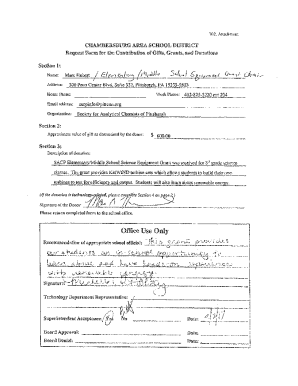 702. Attachment
CHAMBERSBURG AREA SCHOOL DISTRICT
Request Form for the Contribution of Gifts, Grants, and Donations
Section 1:
Name: Elementary/Middle School Equipment Grant Chair
Address: 300 Penn Center Blvd, Suite 332, Pittsburgh, PA 15235-5503
Home Phone: Work Phone: 412-825-3220 ext 204
Email address:
Organization: Society for Analytical Chemists of Pittsburgh
Section 2:
Approximate value of gift as determined by the donor: $
Section 3:
Description of donation:
SACP Elementary/Middle School Science Equipment Grant was received for 5th grade science
classes. The grant provides KidWIND turbine sets which allows students to build their own
turbines to test for efficiency and output. Students will also learn about renewable energy.
(If the donation is technology-related, please complete Section 4 on page 2)
Signature of the Donor
Please return completed form to the school office.
Office Use Only
Recommendation of appropriate school official: This grant provides
our students an in-school opportunity to
learn about and have hands-on experience
with renewable energy.
Signature:
Technology Department Representative:
Superintendent Acceptance: Yes No Date:
Board Approval: Date:
Board Denial: Date: